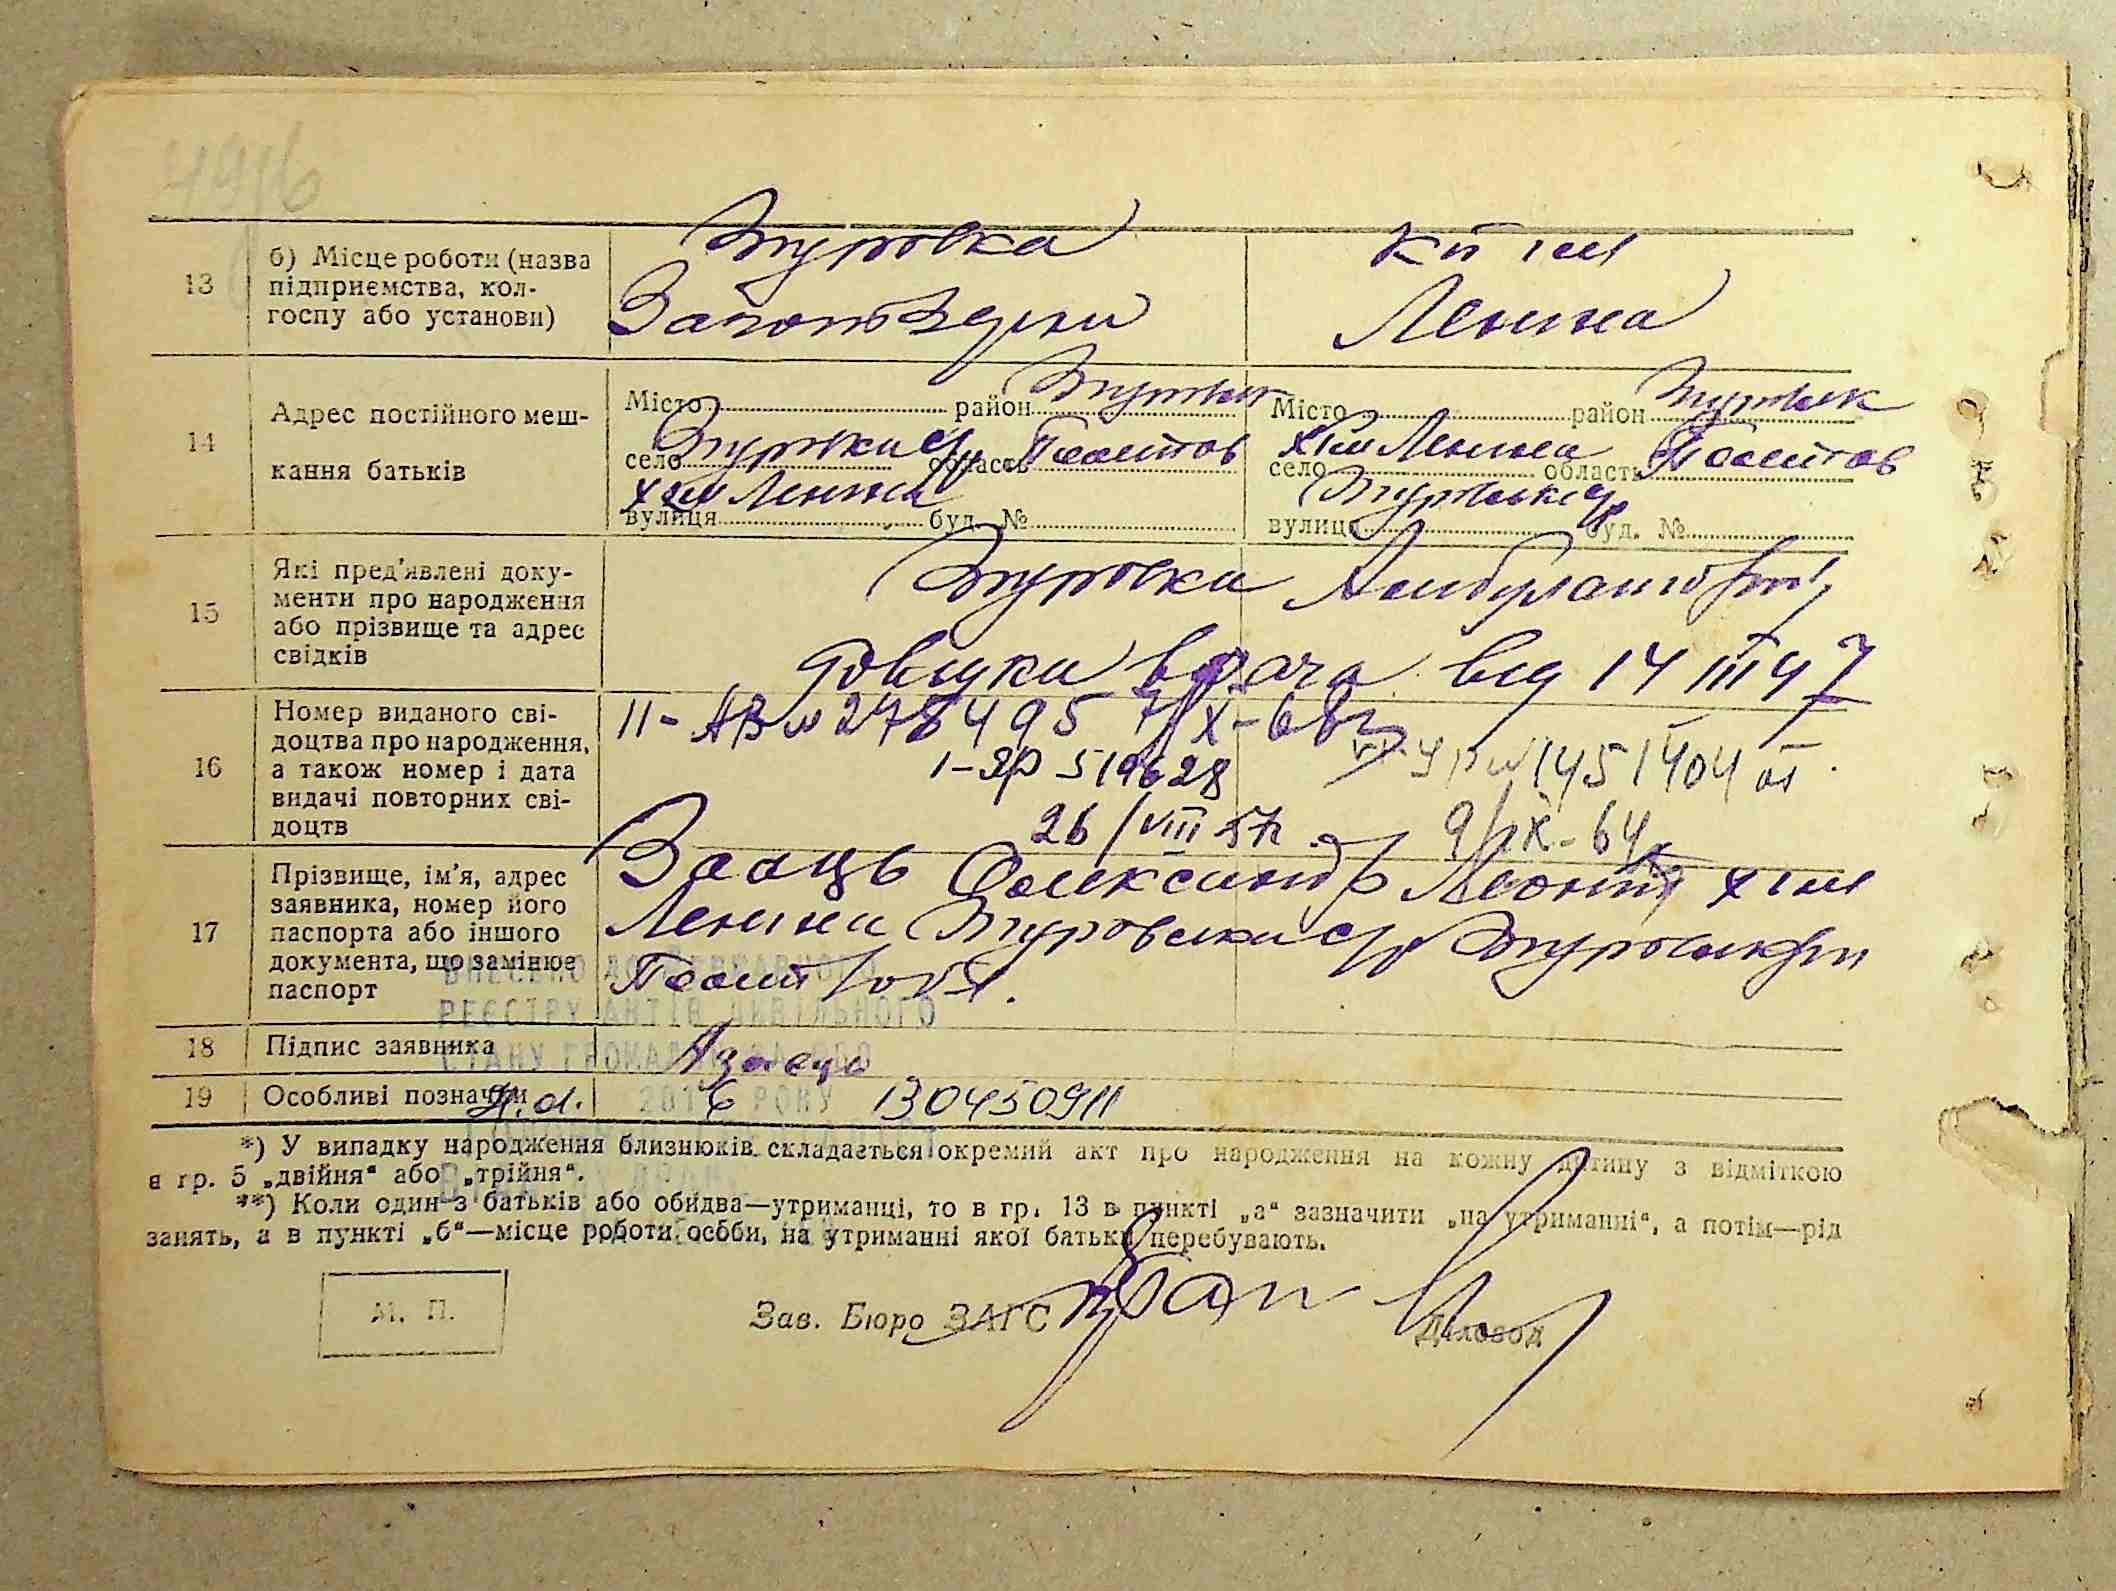 4916
Згуровка
КП ім
13
б) Місце роботи (назва
підприємства, кол-
госпу або установи)
Заготьзерно
Леніна
14
Адрес постійного меш-
кання батьків
Місто район Згурівськ
село область Полтав
х ім Леніна
вулиця буд. №
Місто район Згурівськ
х ім Леніна Полтав
село область
вулиця буд. №
15
Які пред'явлені доку-
менти про народження
або прізвище та адрес
свідків
Згуровка Амбулаторії
довідка врача від 14 III 47
16
Номер виданого сві-
доцтва про народження,
а також номер і дата
видачі повторних сві-
доцтв
II - АВ № 278495 7/X - 68г
1451404 от
519628
26/VIII 57г
9/IX - 64г
17
Прізвище, ім'я, адрес
заявника, номер його
паспорта або іншого
документа, що замінює
паспорт
Заєць Олександр Леонт х ім
Леніна
Полт обл.
ВНЕСЕНО ДО ДЕРЖАВНОГО
РЕЄСТРУ АКТІВ ЦИВІЛЬНОГО
СТАНУ ГРОМАДЯН
18
Підпис заявника
19
Особливі позначки
РОКУ
130450911
*) У випадку народження близнюків складається окремий акт про народження на кожну дитину з відміткою
в гр. 5 „двійня" або „трійня".
**) Коли один з батьків або обидва—утриманці, то в гр. 13 в пункті „а" зазначити „на утриманні", а потім—рід
занять, а в пункті „б"—місце роботи особи, на утриманні якої батьки перебувають.
М. П.
Зав. Бюро ЗАГС
Діловод